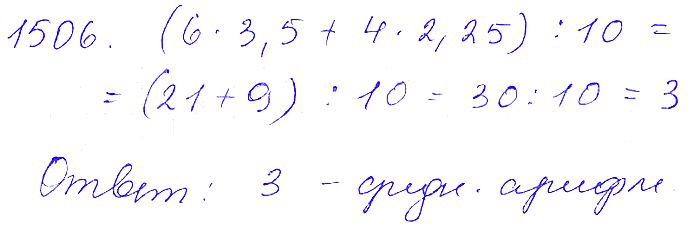 1506. (6 · 3,5 + 4 · 2,25) : 10 =
= (21 + 9) : 10 = 30 : 10 = 3
Ответ: 3 - средн. арифм.